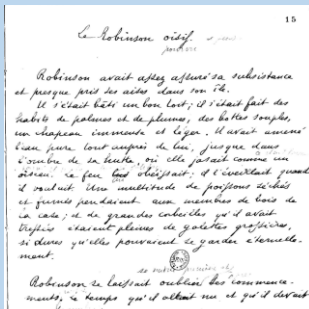 15
Le Robinson oisif.
Robinson avait assez assuré sa subsistance
et presque pris ses aises dans son île.
Il s'était bâti un bon toit ; il s'était fait des
habits de palmes et de plumes, des bottes souples,
un chapeau immense et léger. Il avait amené
l'eau pure tout auprès de lui, jusque dans
l'ombre de sa hutte, où elle jasait comme un
oiseau. Le feu lui obéissait ; il l'éveillait quand
il voulait. Une multitude de poissons séchés
et fumés pendaient aux membres de bois de
la case ; et de grandes corbeilles qu'il avait
tressées étaient pleines de galettes grossières,
si dures qu'elles pouvaient se garder éternelle-
ment.
Robinson se laissait oublier ses commence-
ments, le temps qu'il allait nu et qu'il devait